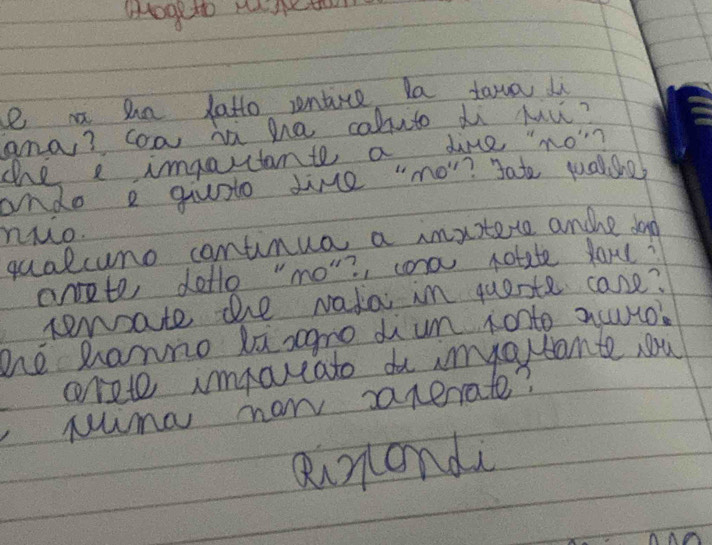 Progetto
e vi ha fatto sentire la storia di
ana? Cosa vi ha colpito di più?
ché è importante a dire "no"?
ando è giusto dire "no"? Fate qualche
mpio.
qualcuno continua a insistere anche dop
avete detto "no"?, cosa potete fare?
pensate che vada in queste case?
ché hanno bisogno di un posto sicuro?
avete imparato di importante
prima non sapevate?
Rispondi